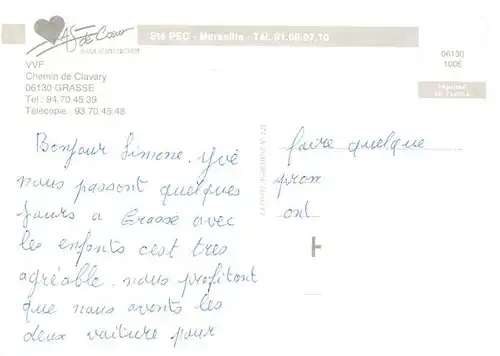 AS de Cœur
Sté PEC - Marseille - Tél. 91.08.07.10
VVF
Chemin de Clavary
06130 GRASSE
Tél : 94.70.45.39
Télécopie : 93.70.45.48
06130
1006
Imprimé
en France
Bonjour Simone, yvé
nous passont quelques
jours a Grasse avec
les enfants c'est très
agréable. nous profitont
que nous avonts les
deux voiture pour
faire quelque
prom
ont